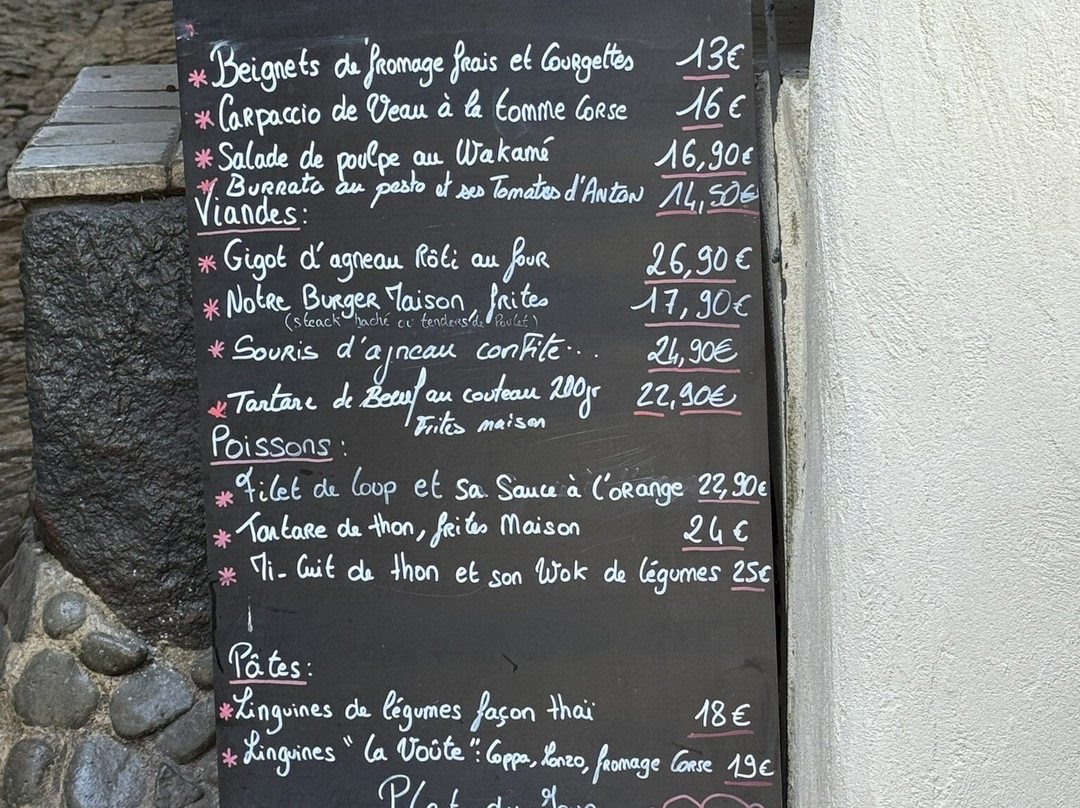 * Beignets de fromage frais et Courgettes 13€
* Carpaccio de Veau à la tomme Corse 16€
* Salade de poulpe au Wakamé 16,90€
* Burrata au pesto et ses Tomates d'Antan 14,50€
Viandes:
* Gigot d'agneau Rôti au four 26,90€
* Notre Burger Maison, frites 17,90€
(steack haché ou tenders de Poulet)
* Souris d'agneau confite... 24,90€
* Tartare de Boeuf au couteau 200gr 22,90€
Frites maison
Poissons:
* Filet de loup et sa Sauce à l'orange 22,90€
* Tartare de thon, frites Maison 24€
* Mi-Cuit de thon et son Wok de légumes 25€
Pâtes:
* Linguines de légumes façon thaï 18€
* Linguines "La Voûte": Coppa, Lonzo, fromage Corse 19€
Plat du Jour